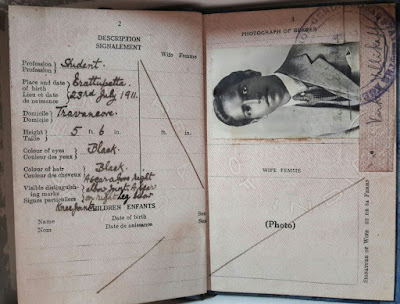 2
DESCRIPTION
SIGNALEMENT
Wife Femme
Profession
Profession
Student.
Place and date
of birth
Lieu et date
de naissance
Erattupetta
23rd July 1911.
Domicile
Domicile
Travancore.
Height
Taille
5 ft. 6 in.
Colour of eyes
Couleur des yeux
Black.
Colour of hair
Couleur des cheveux
Black.
Visible distinguish-
ing marks.
Signes particuliers
A scar above right
elbow joint. A scar
on right leg below
Knee joint
CHILDREN ENFANTS
Name
Nom
Date of birth
Date de naissance
Sex
PHOTOGRAPH OF BEARER
WIFE FEMME
(Photo)
SIGNATURE OF WIFE
ET DE SA FEMME